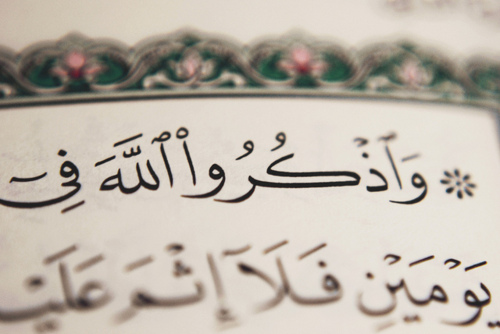 ۞ وَٱذۡكُرُوا۟ ٱللَّهَ فِيٓ
يَوۡمَيۡنِ فَلَآ إِثۡمَ عَلَيۡ